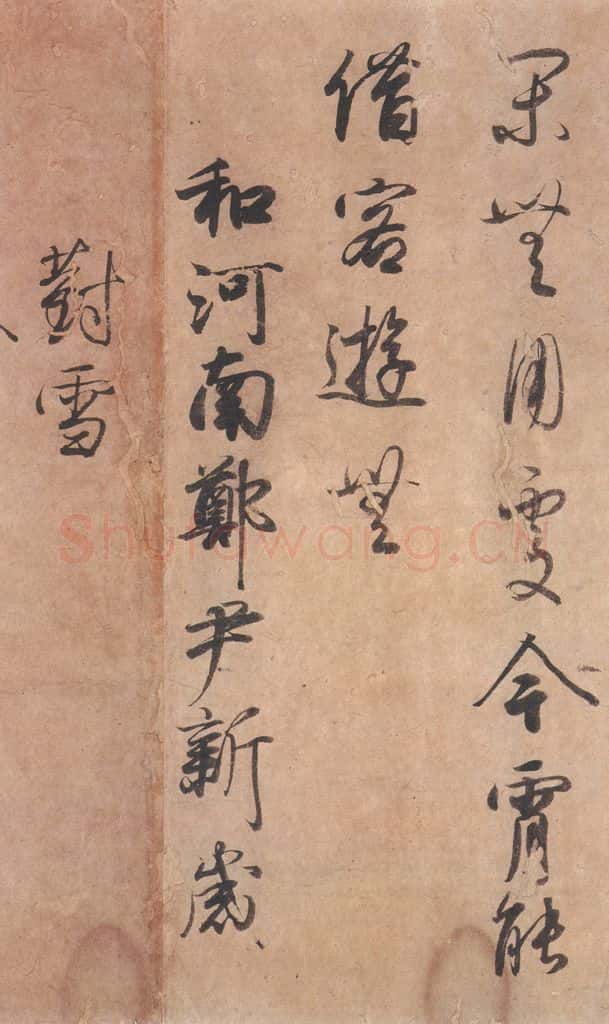 閑無用處今霄能
借客遊無
和河南鄭尹新歲
對雪
Shufawang.CN